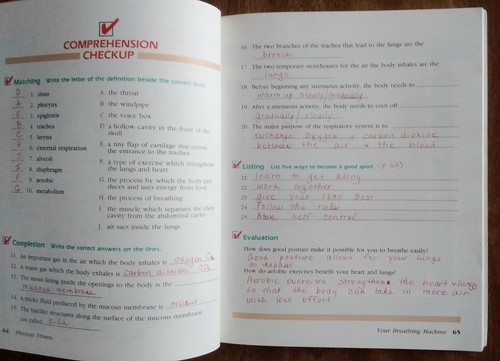 COMPREHENSION
CHECKUP
Matching Write the letter of the definition beside the correct term.
D 1. sinus
A 2. pharynx
E 3. epiglottis
B 4. trachea
C 5. larynx
H 6. external respiration
J 7. alveoli
I 8. diaphragm
F 9. aerobic
G 10. metabolism
A. the throat
B. the windpipe
C. the voice box
D. a hollow cavity in the front of the
skull
E. a tiny flap of cartilage that covers
the entrance to the trachea
F. a type of exercise which strengthens
the lungs and heart
G. the process by which the body pro-
duces and uses energy from food
H. the process of breathing
I. the muscle which separates the chest
cavity from the abdominal cavity
J. air sacs inside the lungs
Completion Write the correct answers on the lines.
11. An important gas in the air which the body inhales is oxygen
12. A waste gas which the body exhales is carbon dioxide
13. The moist lining inside the openings to the body is the
mucous membrane
14. A sticky fluid produced by the mucous membrane is mucus
15. The hairlike structures along the surface of the mucous membrane
are called cilia
64 Physical Fitness
16. The two branches of the trachea that lead to the lungs are the
bronchi
17. The two temporary storehouses for the air the body inhales are the
lungs
18. Before beginning any strenuous activity, the body needs to
warm up slowly/gradually
19. After a strenuous activity, the body needs to cool off
gradually/slowly
20. The major purpose of the respiratory system is to
exchange oxygen + carbon dioxide
between the air + the blood
Listing List five ways to become a good sport. (p 62)
21. learn to get along
22. work together
23. give your very best
24. follow the rules
25. have self-control
Evaluation
How does good posture make it possible for you to breathe easily?
Good posture allows for your lungs
to expand
How do aerobic exercises benefit your heart and lungs?
Aerobic exercises strengthens the heart + lungs
so that the body can take in more air
with less effort.
Your Breathing Machine 65